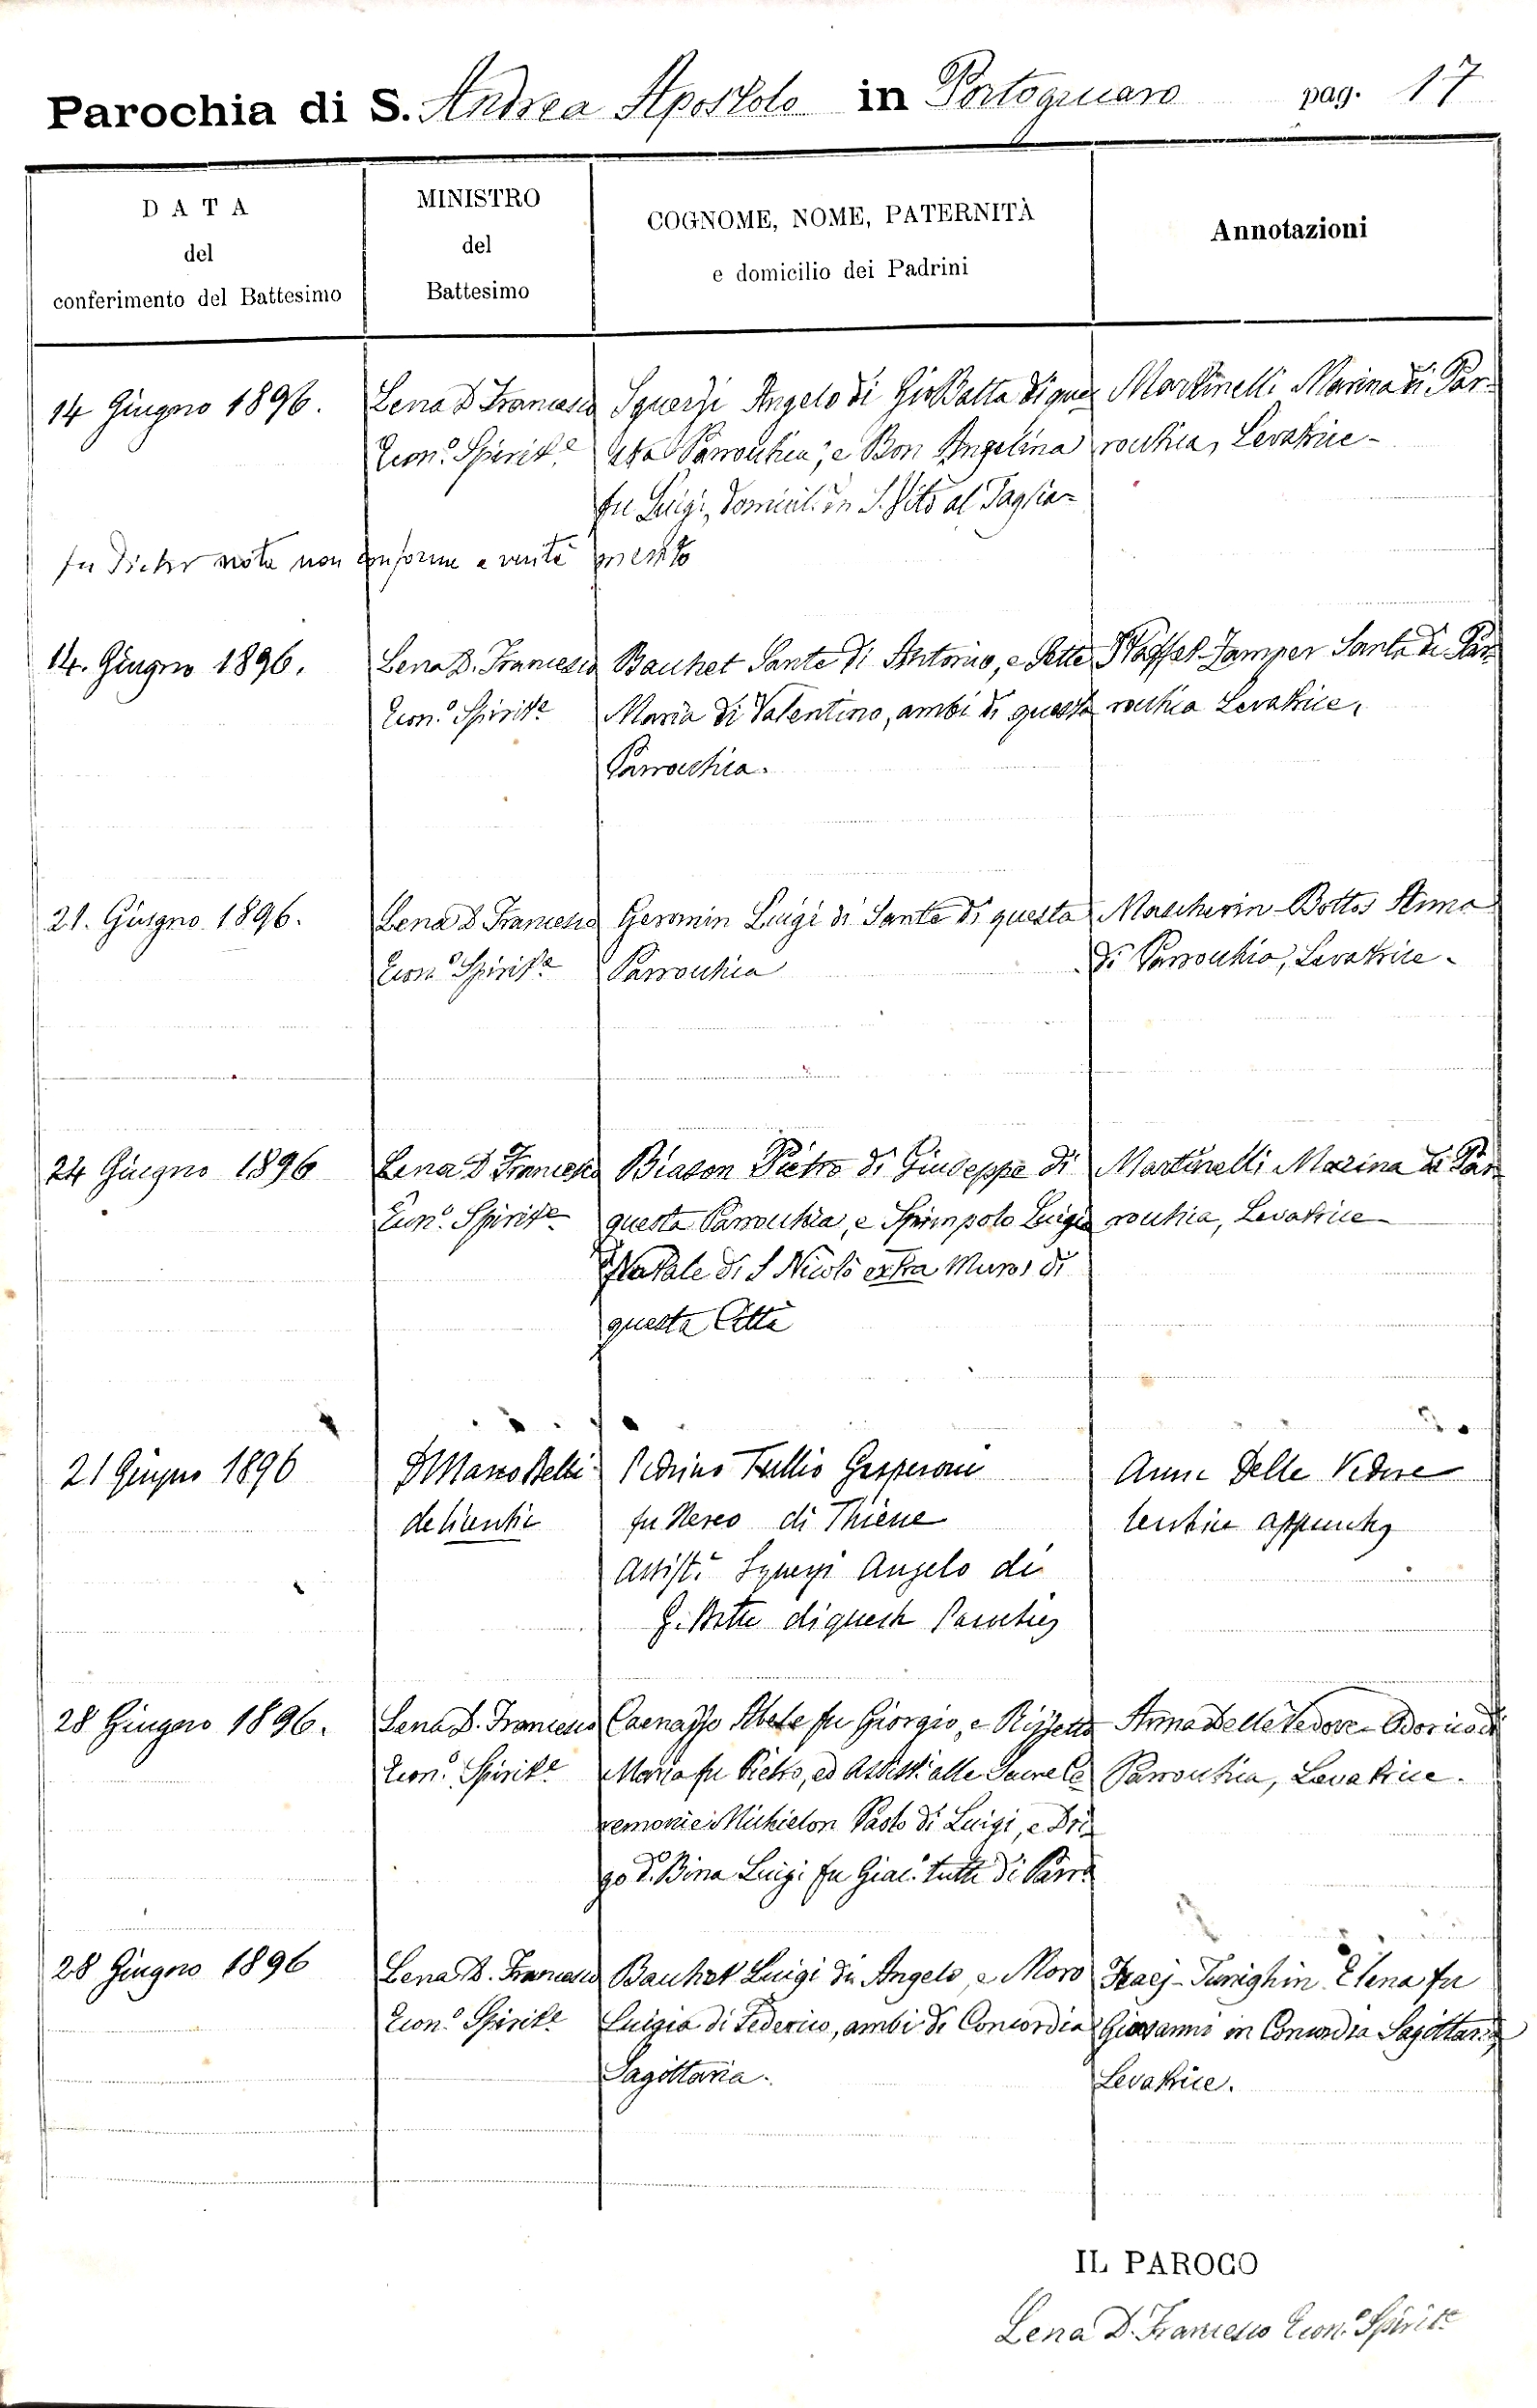 Parochia di S. Andrea Apostolo in Portogruaro pag. 17
DATA
del
conferimento del Battesimo
MINISTRO
del
Battesimo
COGNOME, NOME, PATERNITÀ
e domicilio dei Padrini
Annotazioni
14 Giugno 1896.
Lena D. Francesco
Econ.º Spirit.e
Squerzi Angelo di GioBatta di que=
sta Parrochia, e Bon Angelina
fu Luigi, domicil. in S. Vito al Taglia=
mento
Martinelli Marina di Par=
rochia, Levatrice -
nota non conforme a verità
14. Giugno 1896.
Lena D. Francesco
Econ.º Spirit.e
Bauhet Sante di Antonio, e Sette
Maria di Valentino, ambi di questa
Parrochia.
Zamper Santa di Par=
rochia Levatrice.
21. Giugno 1896.
Lena D. Francesco
Econ.º Spirit.e
Geromin Luigi di Sante di questa
Parrochia
Mascherin-Bottos Anna
di Parrochia, Levatrice -
24 Giugno 1896
Lena D. Francesco
Econ.º Spirit.e
Biason Pietro di Giuseppe di
questa Parrochia, e Spimpolo Luigia
Natale di S Nicolò extra Muros di
questa Città
Martinelli Marina di Par=
rochia, Levatrice -
21 Giugno 1896
D Marco Belli
de licentia
Padrino Tullio Gasperoni
fu Nereo di Thiene
Assist.e Squerzi Angelo di
G. Batta di questa Parochia
Anna Delle Vedove
levatrice
28 Giugno 1896.
Lena D. Francesco
Econ.º Spirit.e
Caenazzo Abele fu Giorgio, e Rizzetto
Maria fu Pietro, ed Assisti alle Sacre Ce
remonie Michielon Paolo di Luigi, e Dri
go D. Bina Luigi fu Giac. tutti di Parra
Anna Delle Vedove-Odorico di
Parrochia, Levatrice.
28 Giugno 1896
Lena D. Francesco
Econ.º Spirit.e
Bauhet Luigi di Angelo, e Moro
Luigia di Federico, ambi di Concordia
Sagittaria.
Elena fu
Giovanni in Concordia Sagittaria
Levatrice.
IL PAROCO
Lena D. Francesco Econ.º Spirit.e